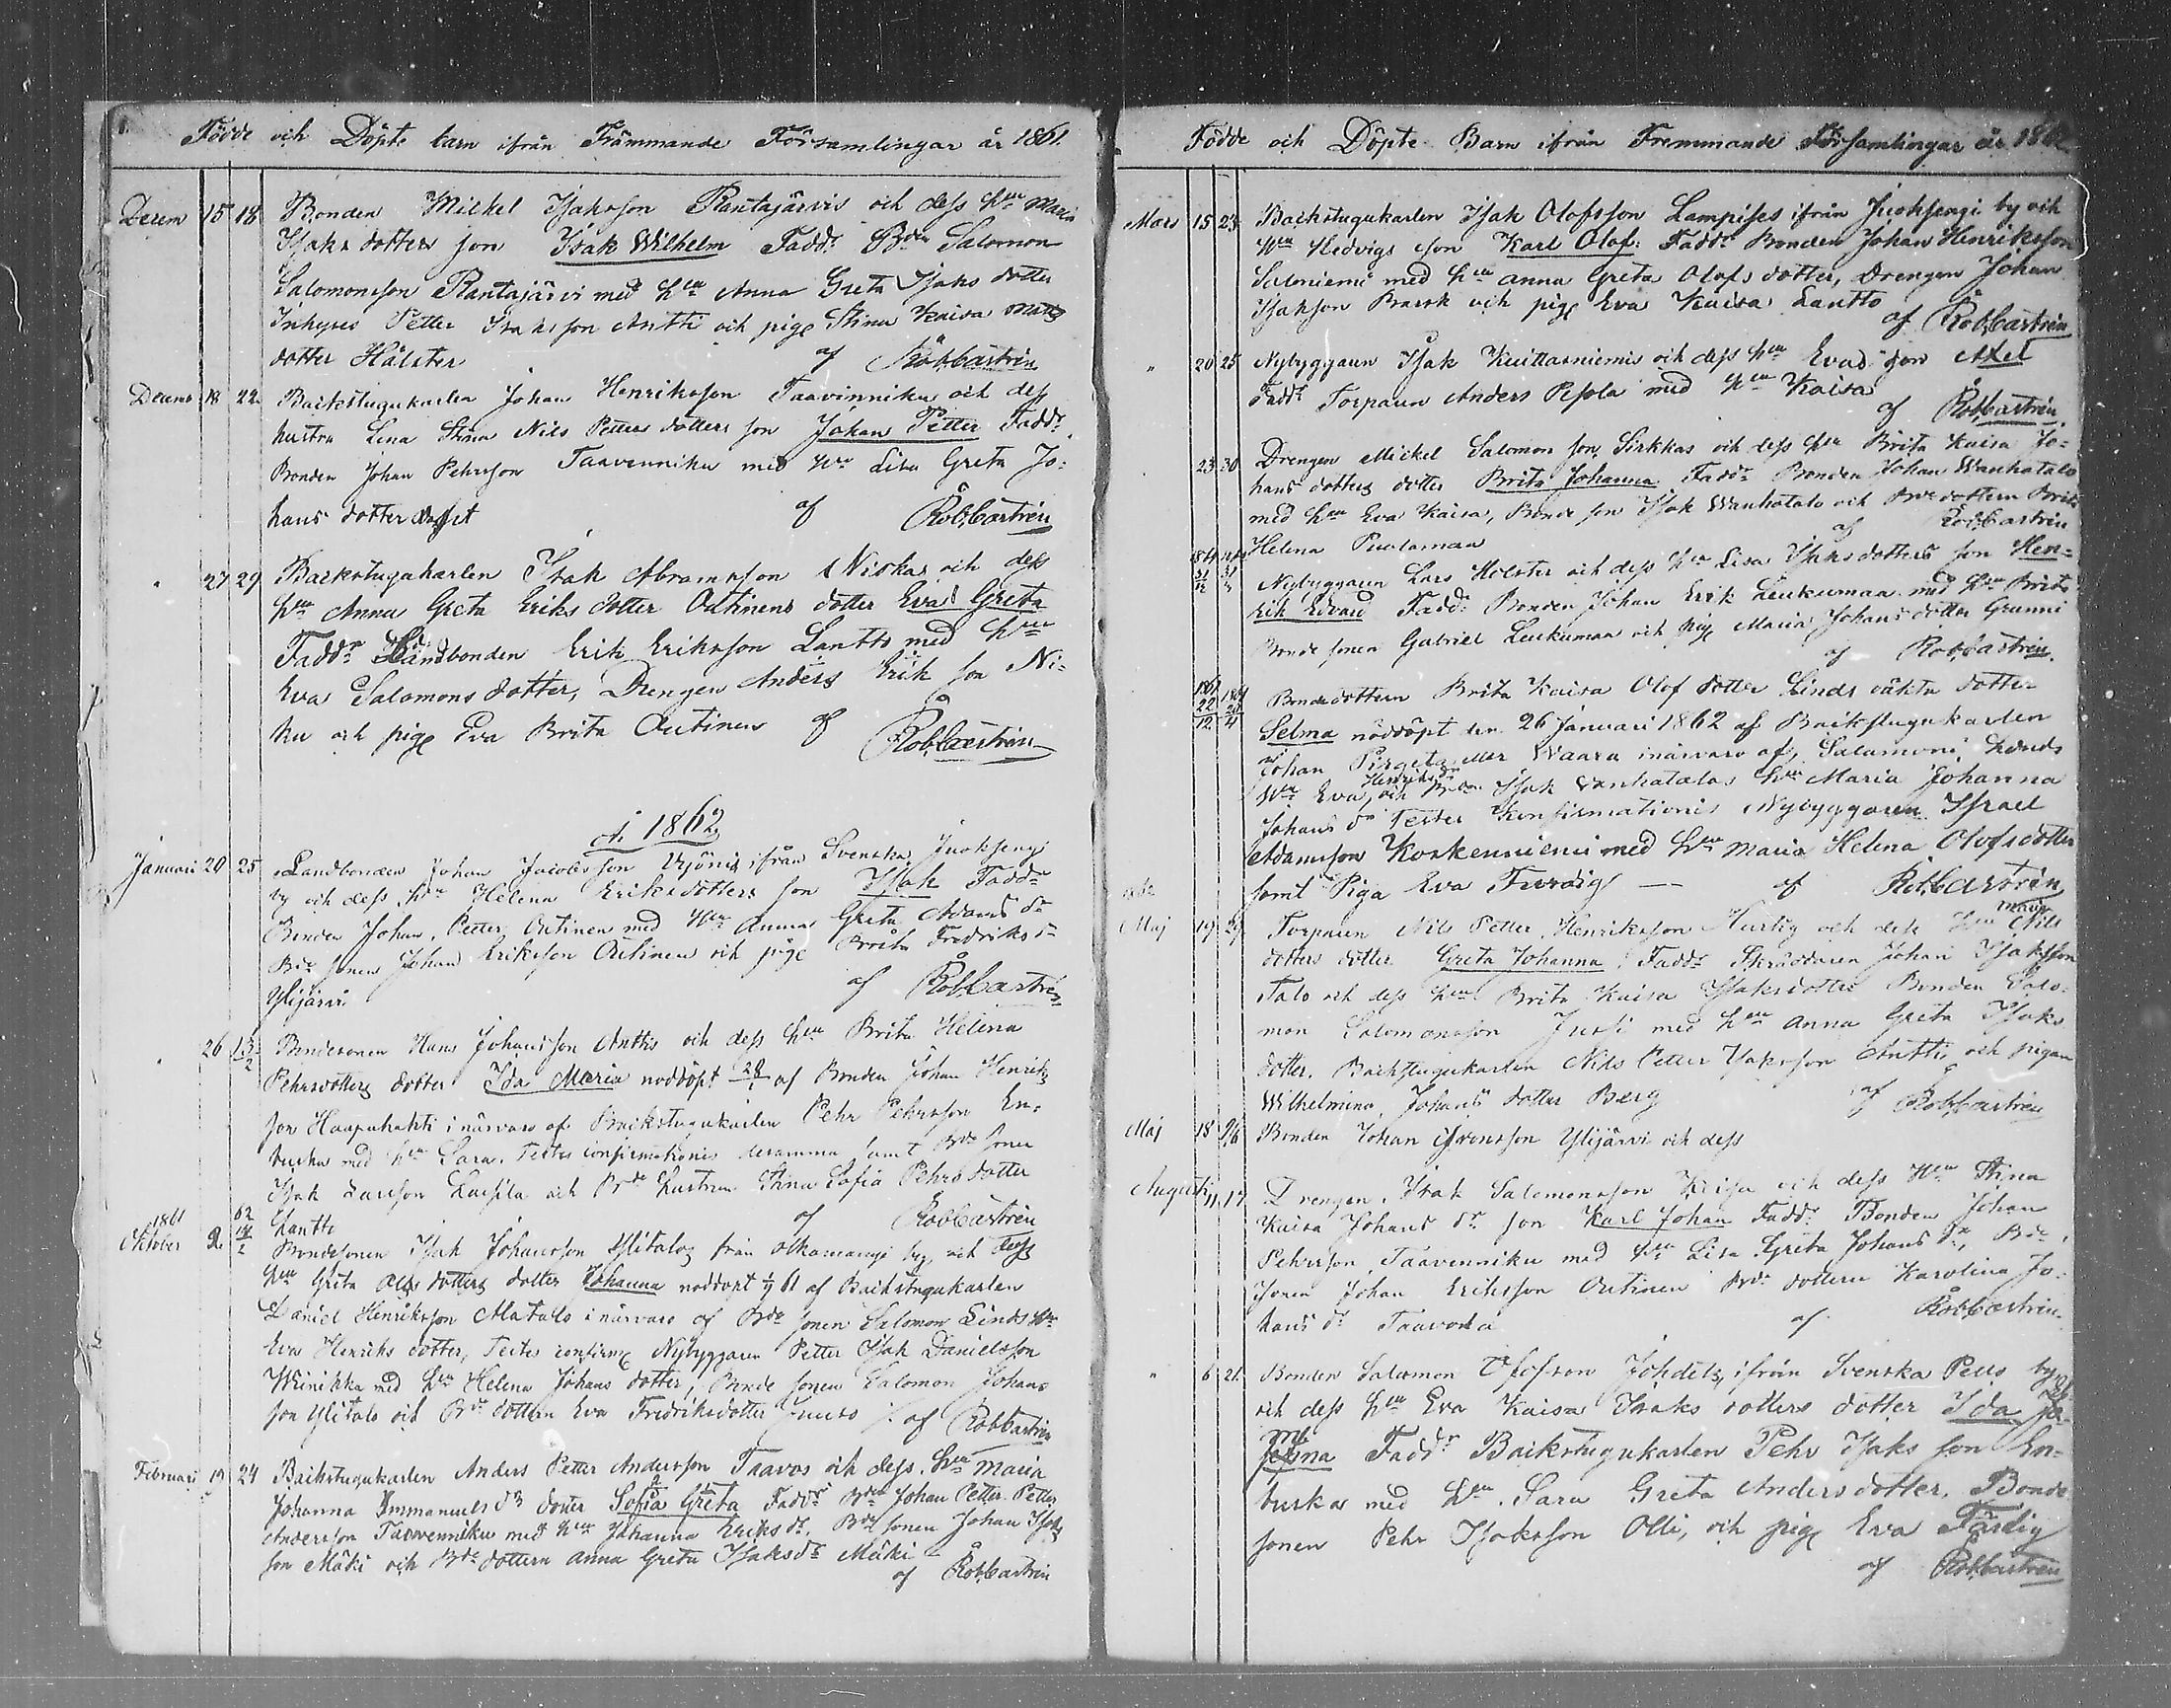 Födde och Döpte barn ifrån Främmande Församlingar år 1861.
Decem 15 18 Bonden Mickel Isaksson Rantajärvis och dess hru Maria
Isaks dotters son Isak Wilhelm Faddr Bden Salomon
Salomonsson Rantajärvi med hru Anna Greta Isaks dotter
Inhyses Petter Isaksson Antti och pig Stina Kaisa Matts
dotter Hälster af Rob. Castrén
Decemb 18 22 Backstugukarlen Johan Henriksson Taavinnikus och dess
hustru Lena Stina Nils Petters dotters son Johan Petter Faddr
Bonden Johan Pehrsson Taavenniku med hru Lisa Greta Jo=
hans dotter af Rob. Castrén
" 27 29 Backstugukarlen Isak Abramsson Niskas och dess
hru Anna Greta Eriks dotter Outinens dotter Eva Greta
Faddr Landbonden Erik Eriksson Lantto med hru
Eva Salomons dotter, Drengen Anders Erik son Ni=
ku och pig Eva Brita Outinen af Rob. Castrén
År 1862
Januari 20 25 Landbonden Johan Jacobsson ifrån Svenska Juoksengi
by och dess hru Helena Eriksdotters son Isak Faddr
Bonden Johan Petter Outinen med hru Anna Greta Adams dr
Bde sonen Johan Eriksson Outinen och pige Brita Fredriks dr
Ylijärvi af Rob. Castrén
" 26 13/2 Bondesonen Hans Johansson Anttis och dess hru Brita Helena
Pehrsdotters dotter Ida Maria noddöpt 28 af Bonden Johan Henriks
son Haapalahti i närvaro af Backstugukarlen Pehr Pehrsson En=
buska med hru Sara. Testes confirmationis desamma samt Bde sonen
Isak Larsson och Bde hustrun Stina Sofia Pehrs dotter
Lantto af Rob Castrén
1861 Oktober 2. 62 14/2 Bondesonen Isak Johansson Ylitalos från Alkamangi by och dess
hru Greta dotters dotter Johanna noddöpt 61 af Backstugukarlen
Daniel Henriksson Matalo i närvaro af Bde sonen Salomon Linds hru
Eva Henriks dotter, Testes confirm Nybyggaren Petter Isak Danielsson
Weinikka med hru Helena Johans dotter, Bonde sonen Salomon Johans
son Ylitalo och Bde dottern Eva Fredriksdotter Juuso af Rob Castrén
Februari 19 24 Backstugukarlen Anders Petter Andersson Taavos och dess hru Maria
Johanna Immanuels drs dotter Sofia Greta Faddr Bden Johan Petter Petter
Andersson Taavenniku med hru Johanna Eriks dr, Bde sonen Johan Isaks
son Mäki och Bde dottern Anna Greta Isaks dr Mäki
af Rob. Castrén
Födde och Döpte Barn ifrån Fremmande Församlingar år 1862
Mars 15 23 Backstugukarlen Isak Olofsson Lampises ifrån Juoksengi by och
hru Hedvigs son Karl Olof: Faddr Bonden Johan Henriksson
Saloniemi med hru Anna Greta Olofs dotter, Drengen Johan
Isaksson Brask och pig Eva Kaisa Lantto
af Rob. Castrén
" 20 25 Nybyggaren Isak Kuittasniemis och dess hru Evas son Axel
Faddr Torparen Anders Pesola med hru Kaisa
af Rob. Castrén
23 30 Drengen Mickel Salomon son Sirkkas och dess hru Brita Kaisa Jo=
hans dotters dotter Brita Johanna Faddr Bonden Johan Wanhatalo
med hru Eva Kaisa, Bonde son Isak Wanhatalo och Bde dottern Brita
Helena af Rob Castrén
Nybyggaren Lars Hälster och dess hru Lisa Isaksdotters son Hen=
rik Edvard Faddr Bonden Johan Erik Leukumaa med hru Brita
Bonde sonen Gabriel Leukumaa och pig Maria Johans dotter Grunni
af Rob. Castrén
22/12 Bondedottern Brita Kaisa Olof dotter Linds oäkta dotter
Selma nöddöpt den 26 Januari 1862 af Backstugukarlen
Johan Waara i närvaro af Salamoni Linds
hru Eva Henriks dr och Bden Isak Vanhatalos hru Maria Johanna
Johans dr Testes Konfirmationis Nybyggaren Israel
Adamsson Koskenniemi med hru Maria Helena Olofsdotter
samt Piga Eva — af Rob. Castrén
1862 Maj 19 29 Torparen Nils Petter Henriksson Hurtig och dess hru Maria Nils
dotters dotter Greta Johanna. Faddr Skräddaren Johan Isaksson
Talo och dess hru Brita Kaisa Isaksdotter Bonden Salo=
mon Salomonsson Jussi med hru Anna Greta Isaks
dotter. Backstugukarlen Nils Petter Isaksson Antti och pigan
Wilhelmina Johans dotter Berg af Rob. Castrén
Maj 18 26 Bonden Johan Svensson Ylijärvi och dess
Augusti 11 17 Drengen Isak Salomonsson och dess hru Stina
Kaisa Johans drs son Karl Johan Faddr Bonden Johan
Pehrsson Taavenniku med hru Lisa Greta Johans dr, Bde
sonen Johan Eriksson Outinen Bde dottern Karolina Jo=
hans dr Taavola af Rob. Castrén
" 6 21 Bonden Salomon Olofsson ifrån Svenska Pello by
och dess hru Eva Kaisa Isaks dotters dotter Ida Jo=
sefina Faddr Backstugukarlen Pehr Isaks son En=
buska med hru Sara Greta Anders dotter. Bonde
sonen Pehr Isaksson Olli, och pig Eva Färdig
af Rob. Castrén